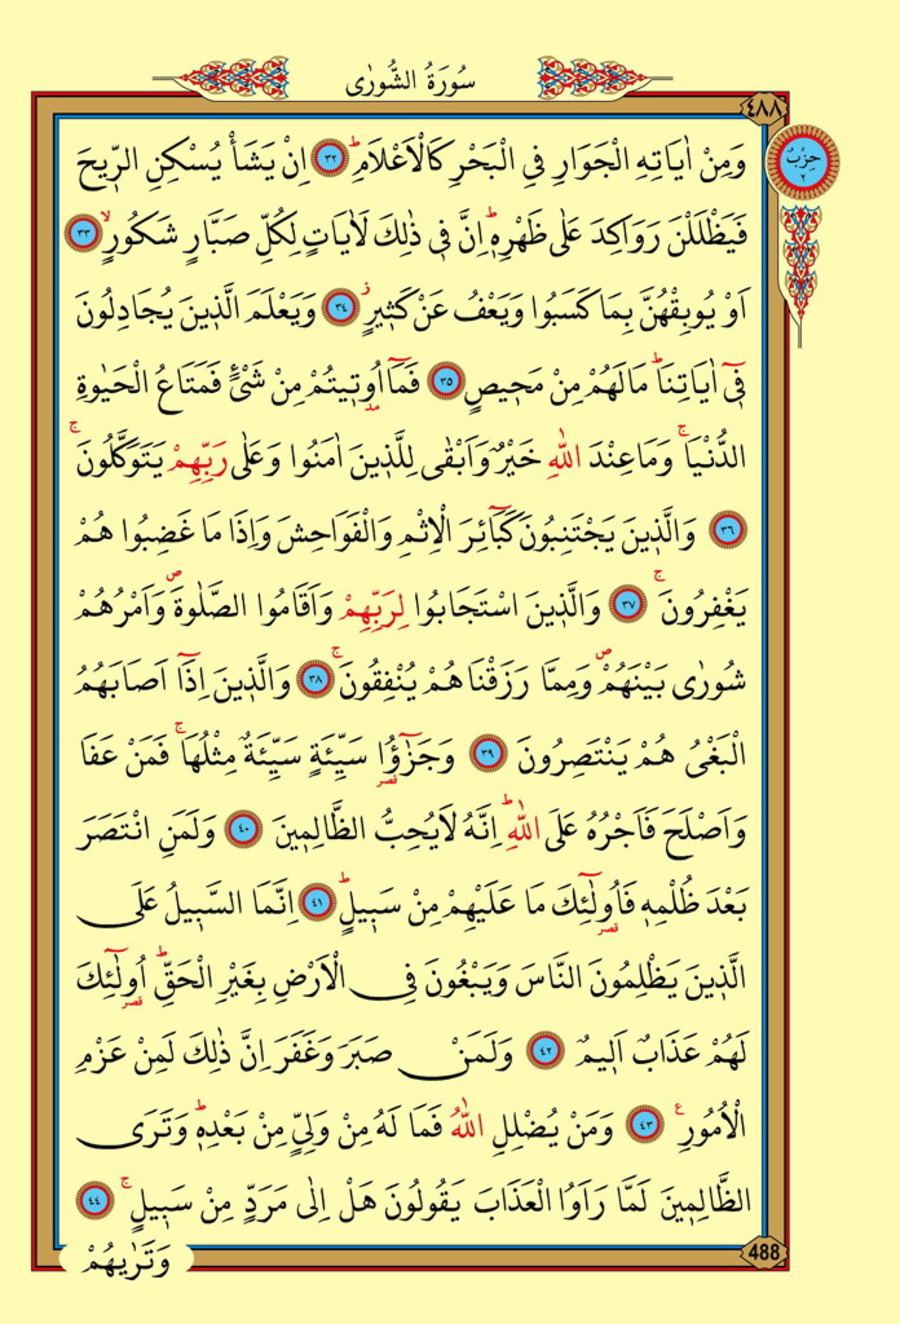 سُورَةُ الشُّورٰى
٤٨٨
حِزْبٌ
٢
وَمِنْ اٰيَاتِهِ الْجَوَارِ فِي الْبَحْرِ كَالْاَعْلَامِۜ ٣٢ اِنْ يَشَأْ يُسْكِنِ الرّ۪يحَ
فَيَظْلَلْنَ رَوَاكِدَ عَلٰى ظَهْرِه۪ۜ اِنَّ ف۪ي ذٰلِكَ لَاٰيَاتٍ لِكُلِّ صَبَّارٍ شَكُورٍۙ ٣٣
اَوْ يُوبِقْهُنَّ بِمَا كَسَبُوا وَيَعْفُ عَنْ كَث۪يرٍۘ ٣٤ وَيَعْلَمَ الَّذ۪ينَ يُجَادِلُونَ
ف۪ٓي اٰيَاتِنَاۜ مَا لَهُمْ مِنْ مَح۪يصٍ ٣٥ فَمَٓا اُو۫ت۪يتُمْ مِنْ شَيْءٍ فَمَتَاعُ الْحَيٰوةِ
الدُّنْيَاۚ وَمَا عِنْدَ اللّٰهِ خَيْرٌ وَاَبْقٰى لِلَّذ۪ينَ اٰمَنُوا وَعَلٰى رَبِّهِمْ يَتَوَكَّلُونَۚ
٣٦ وَالَّذ۪ينَ يَجْتَنِبُونَ كَبَٓائِرَ الْاِثْمِ وَالْفَوَاحِشَ وَاِذَا مَا غَضِبُوا هُمْ
يَغْفِرُونَۚ ٣٧ وَالَّذ۪ينَ اسْتَجَابُوا لِرَبِّهِمْ وَاَقَامُوا الصَّلٰوةَۖ وَاَمْرُهُمْ
شُورٰى بَيْنَهُمْۖ وَمِمَّا رَزَقْنَاهُمْ يُنْفِقُونَۚ ٣٨ وَالَّذ۪ينَ اِذَٓا اَصَابَهُمُ
الْبَغْيُ هُمْ يَنْتَصِرُونَ ٣٩ وَجَزٰٓؤُ۬ا سَيِّئَةٍ سَيِّئَةٌ مِثْلُهَاۚ فَمَنْ عَفَا
وَاَصْلَحَ فَاَجْرُهُ عَلَى اللّٰهِۜ اِنَّهُ لَا يُحِبُّ الظَّالِم۪ينَ ٤٠ وَلَمَنِ انْتَصَرَ
بَعْدَ ظُلْمِه۪ فَاُو۬لٰٓئِكَ مَا عَلَيْهِمْ مِنْ سَب۪يلٍۜ ٤١ اِنَّمَا السَّب۪يلُ عَلَى
الَّذ۪ينَ يَظْلِمُونَ النَّاسَ وَيَبْغُونَ فِي الْاَرْضِ بِغَيْرِ الْحَقِّۜ اُو۬لٰٓئِكَ
لَهُمْ عَذَابٌ اَل۪يمٌ ٤٢ وَلَمَنْ صَبَرَ وَغَفَرَ اِنَّ ذٰلِكَ لَمِنْ عَزْمِ
الْاُمُورِ ع ٤٣ وَمَنْ يُضْلِلِ اللّٰهُ فَمَا لَهُ مِنْ وَلِيٍّ مِنْ بَعْدِه۪ۜ وَتَرَى
الظَّالِم۪ينَ لَمَّا رَاَوُا الْعَذَابَ يَقُولُونَ هَلْ اِلٰى مَرَدٍّ مِنْ سَب۪يلٍۚ ٤٤
488
وَتَرٰيهُمْ